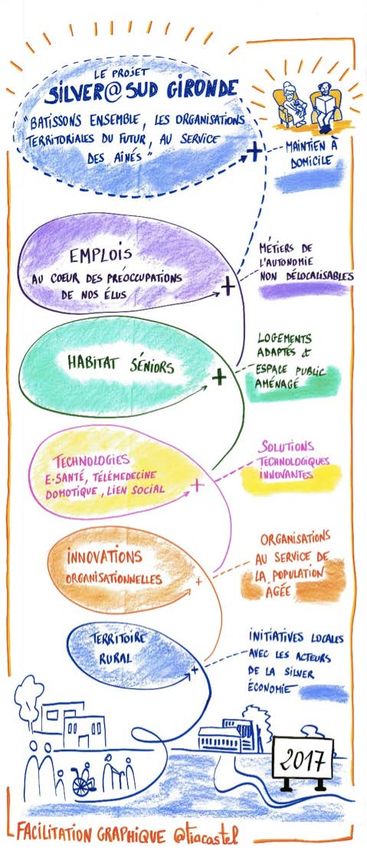 LE PROJET
SILVER@SUD GIRONDE
"BATISSONS ENSEMBLE, LES ORGANISATIONS
TERRITORIALES DU FUTUR, AU SERVICE
DES AÎNÉS"
+
MAINTIEN À
DOMICILE
EMPLOIS
AU COEUR DES PRÉOCCUPATIONS
DE NOS ÉLUS
+
MÉTIERS DE
L'AUTONOMIE
NON DÉLOCALISABLES
HABITAT SÉNIORS
+
LOGEMENTS
ADAPTÉS &
ESPACE PUBLIC
AMÉNAGÉ
TECHNOLOGIES
E-SANTÉ, TÉLÉMEDECINE
DOMOTIQUE, LIEN SOCIAL
+
SOLUTIONS
TECHNOLOGIQUES
INNOVANTES
INNOVATIONS
ORGANISATIONNELLES
+
ORGANISATIONS
AU SERVICE DE
LA POPULATION
AGÉE
TERRITOIRE
RURAL
+
INITIATIVES LOCALES
AVEC LES ACTEURS
DE LA SILVER
ÉCONOMIE
2017
FACILITATION GRAPHIQUE @tiacastel